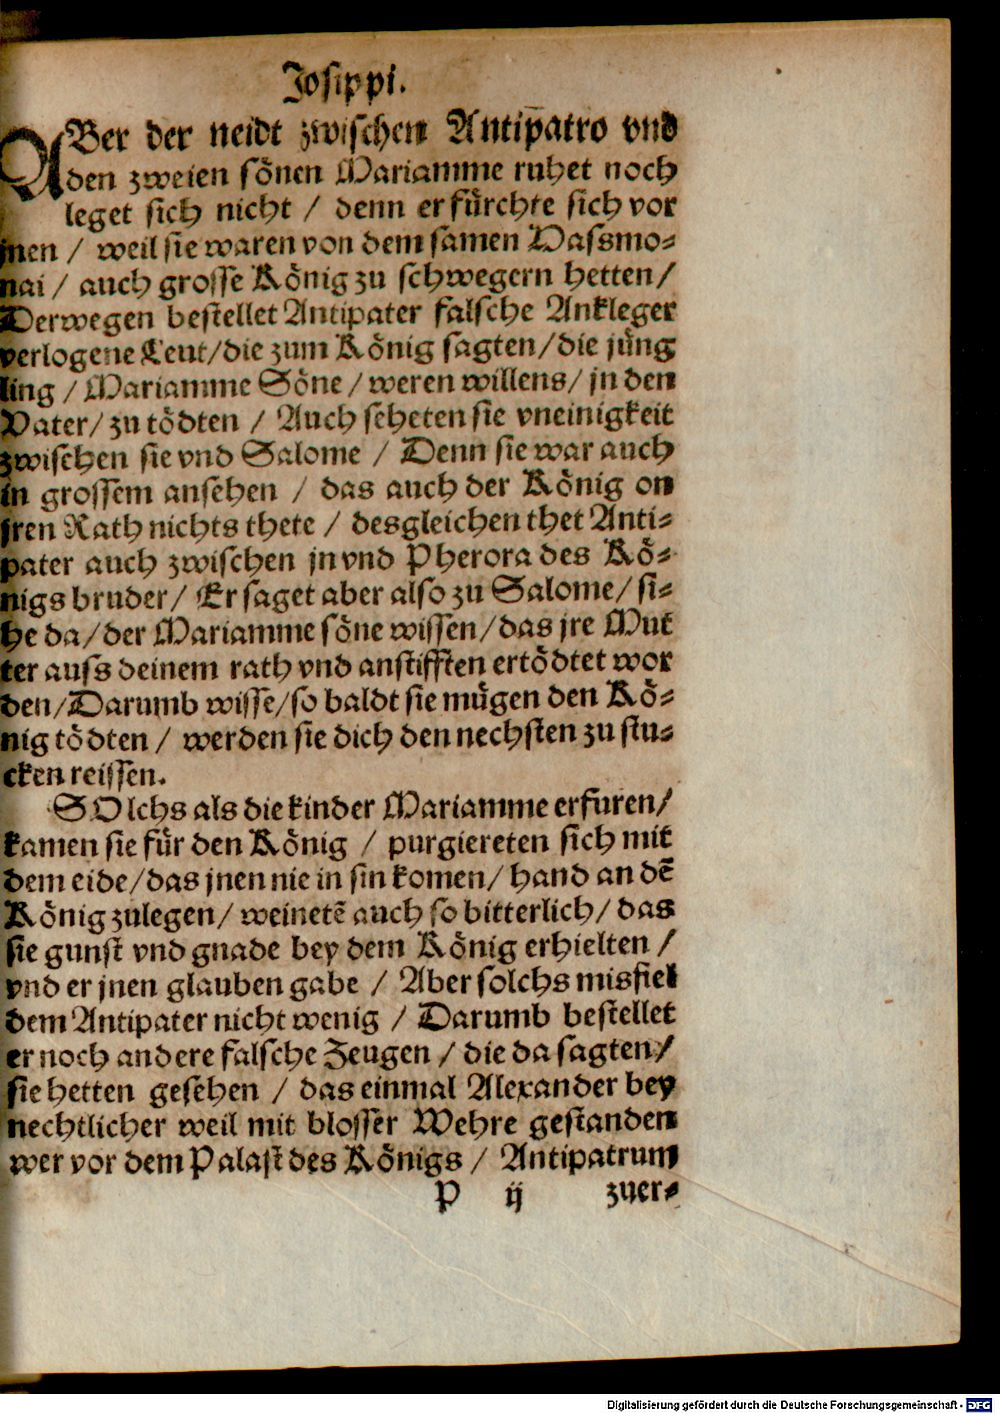 Josippi.
ABer der neidt zwischen Antipatro vnd
den zweien soͤnen Mariamme ruhet noch
leget sich nicht / denn er fuͤrchte sich vor
jnen / weil sie waren von dem samen Hassmo⸗
nai / auch grosse Koͤnig zu schwegern hetten /
Derwegen bestellet Antipater falsche Ankleger
verlogene Leut / die zum Koͤnig sagten / die juͤng
ling / Mariamme Soͤne / weren willens / jn den
Vater / zu toͤdten / Auch seheten sie vneinigkeit
zwischen sie vnd Salome / Denn sie war auch
in grossem ansehen / das auch der Koͤnig on
jren Rath nichts thete / desgleichen thet Anti⸗
pater auch zwischen jn vnd Pherora des Koͤ⸗
nigs bruder / Er saget aber also zu Salome / si⸗
he da / der Mariamme soͤne wissen / das jre Mut
ter auss deinem rath vnd anstifften ertoͤdtet wor
den / Darumb wisse / so baldt sie muͤgen den Koͤ⸗
nig toͤdten / werden sie dich den nechsten zu stu⸗
cken reissen.
SOlchs als die kinder Mariamme erfuren /
kamen sie fuͤr den Koͤnig / purgiereten sich mit
dem eide / das jnen nie in sin komen / hand an dē
Koͤnig zulegen / weinetē auch so bitterlich / das
sie gunst vnd gnade bey dem Koͤnig erhielten /
vnd er jnen glauben gabe / Aber solchs misfiel
dem Antipater nicht wenig / Darumb bestellet
er noch andere falsche Zeugen / die da sagten /
sie hetten gesehen / das einmal Alexander bey
nechtlicher weil mit blosser Wehre gestanden
wer vor dem Palast des Koͤnigs / Antipatrum
P ij zuer⸗
Digitalisierung gefördert durch die Deutsche Forschungsgemeinschaft - DFG